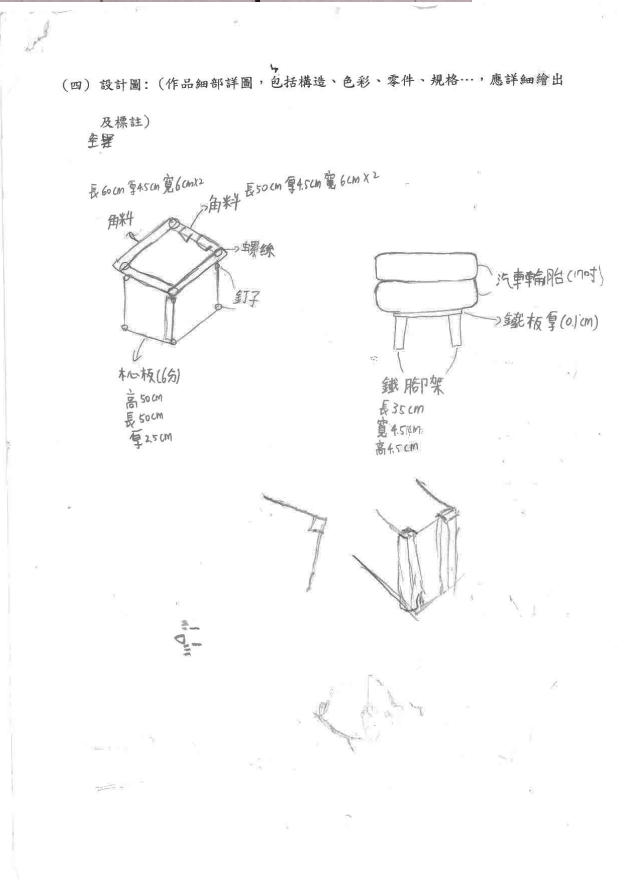 (四) 設計圖:(作品細部詳圖,包括構造、色彩、零件、規格…,應詳細繪出
及標註)
長60cm 厚4.5cm 寬6cm×2
長50cm 厚4.5cm 寬6cm×2
角料
角料
螺絲
釘子
木心板(6分)
高50cm
長50cm
厚2.5cm
汽車輪胎(17吋)
鐵板厚(0.1cm)
鐵腳架
長35cm
寬4.5cm
高4.5cm